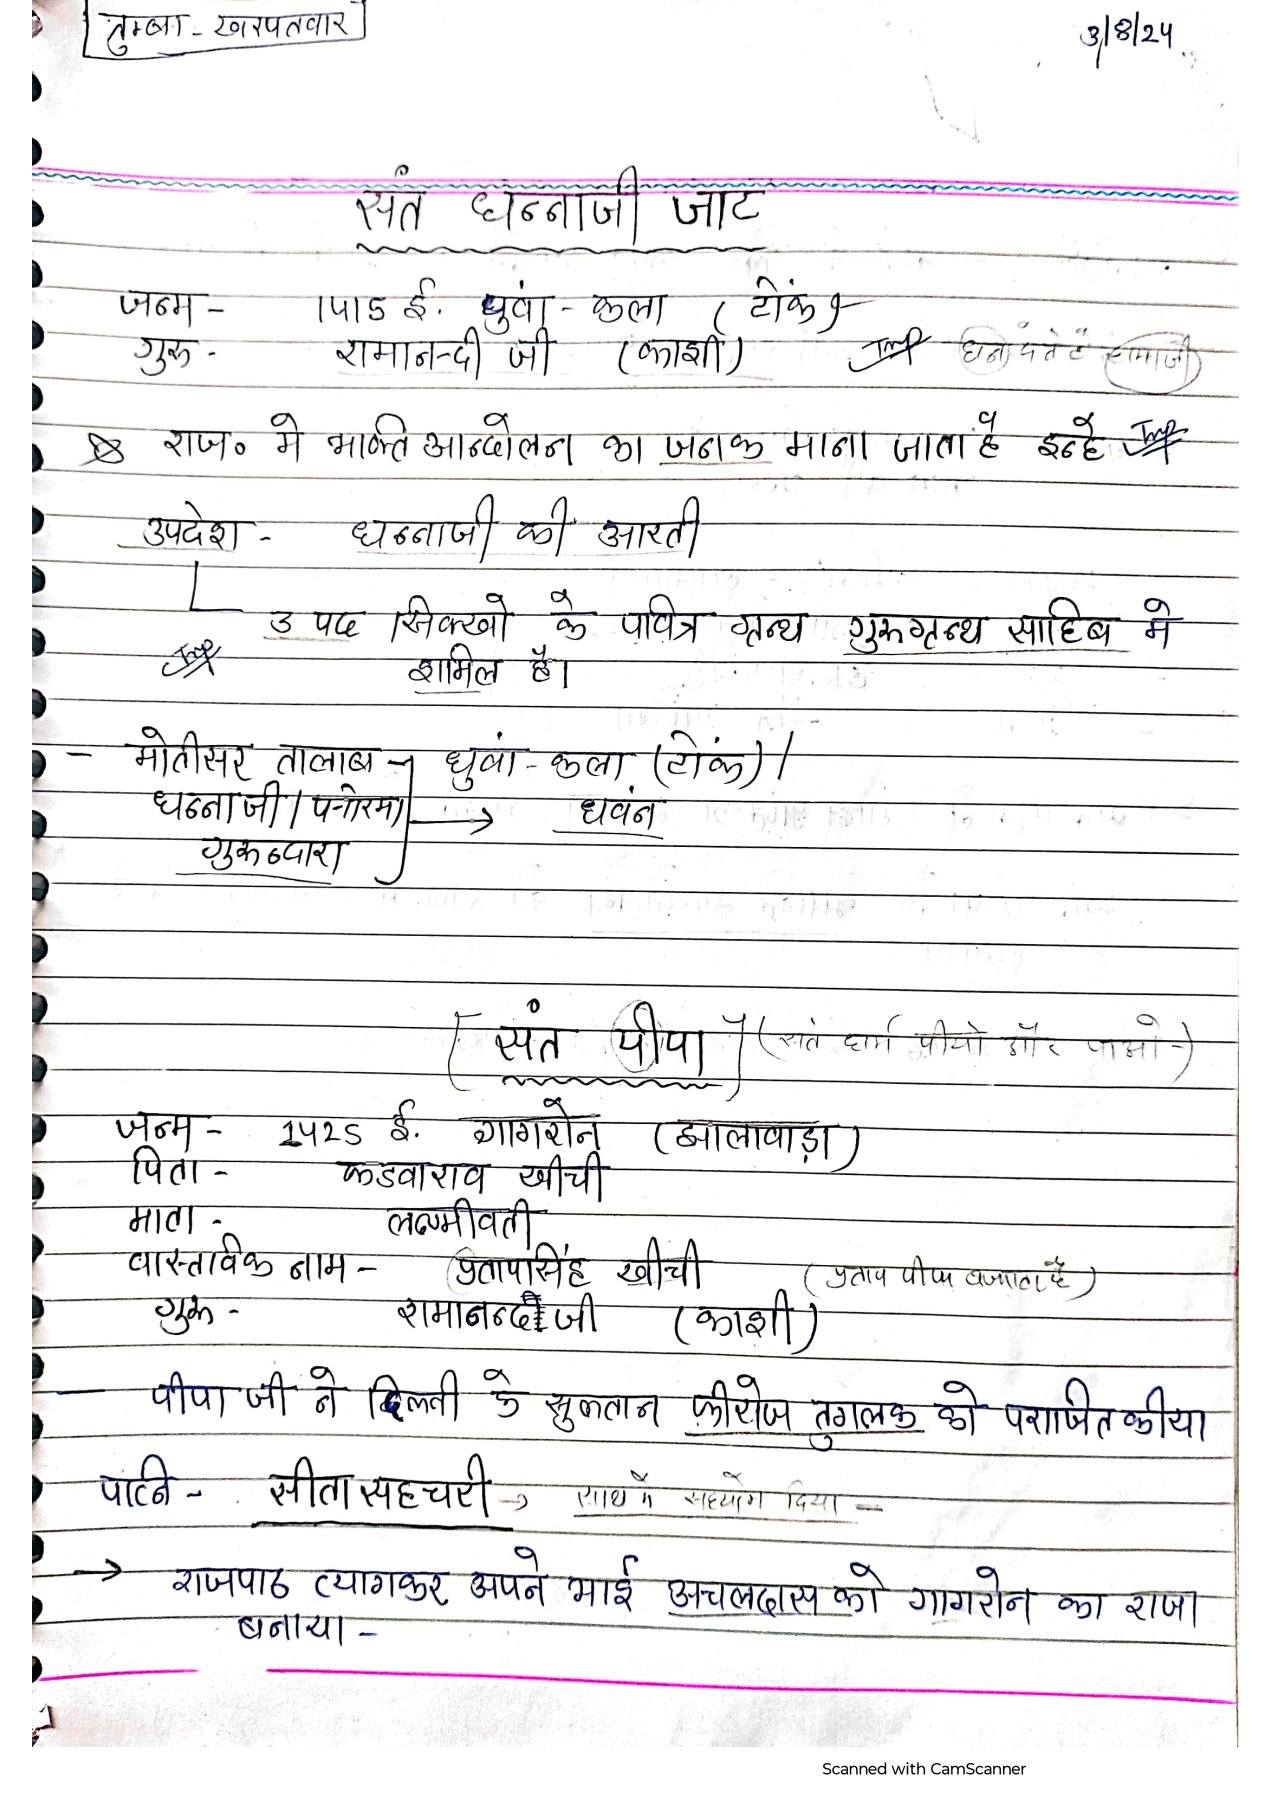 तुम्बा - खरपतवार
3/8/24
संत धन्नाजी जाट
जन्म - 1415 ई. धुवां - कला (टोंक)
गुरू - रामानन्दी जी (काशी) Imp
राज० मे भक्ति आन्दोलन का जनक माना जाता है इन्हे Imp
उपदेश - धन्नाजी की आरती
3 पद सिक्खो के पवित्र ग्रन्थ गुरूग्रन्थ साहिब मे
Imp शामिल है।
- मोतीसर तालाब - धुवां - कला (टोंक) /
धन्नाजी / पनोरमा → धवंन
गुरूद्वारा
[संत पीपा] (संत धर्म पीयो और पाओ -)
जन्म - 1425 ई. गागरोन (झालावाड़ा)
पिता - कडवाराव खीची
माता - लक्ष्मीवती
वास्तविक नाम - प्रतापसिंह खीची (प्रताप पीपा बजाता है)
गुरू - रामानन्दी जी (काशी)
— पीपा जी ने दिल्ली के सुल्तान फ़ीरोज तुगलक को पराजित कीया
पत्नि - सीता सहचरी → साथ मे सहयोग दिया —
→ राजपाठ त्यागकर अपने भाई अचलदास को गागरोन का राजा
बनाया -
Scanned with CamScanner